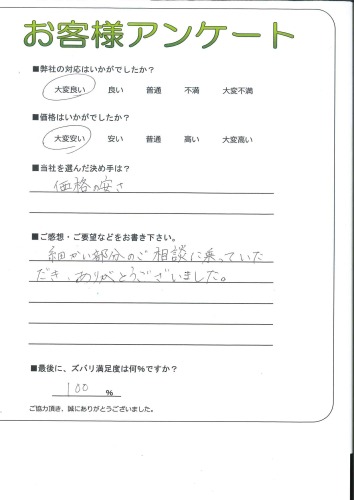 お客様アンケート
■弊社の対応はいかがでしたか？
大変良い 良い 普通 不満 大変不満
■価格はいかがでしたか？
大変安い 安い 普通 高い 大変高い
■当社を選んだ決め手は？
価格の安さ
■ご感想・ご要望などをお書き下さい。
細かい部分のご相談に乗っていた
だき、ありがとうございました。
■最後に、ズバリ満足度は何％ですか？
100 ％
ご協力頂き、誠にありがとうございました。